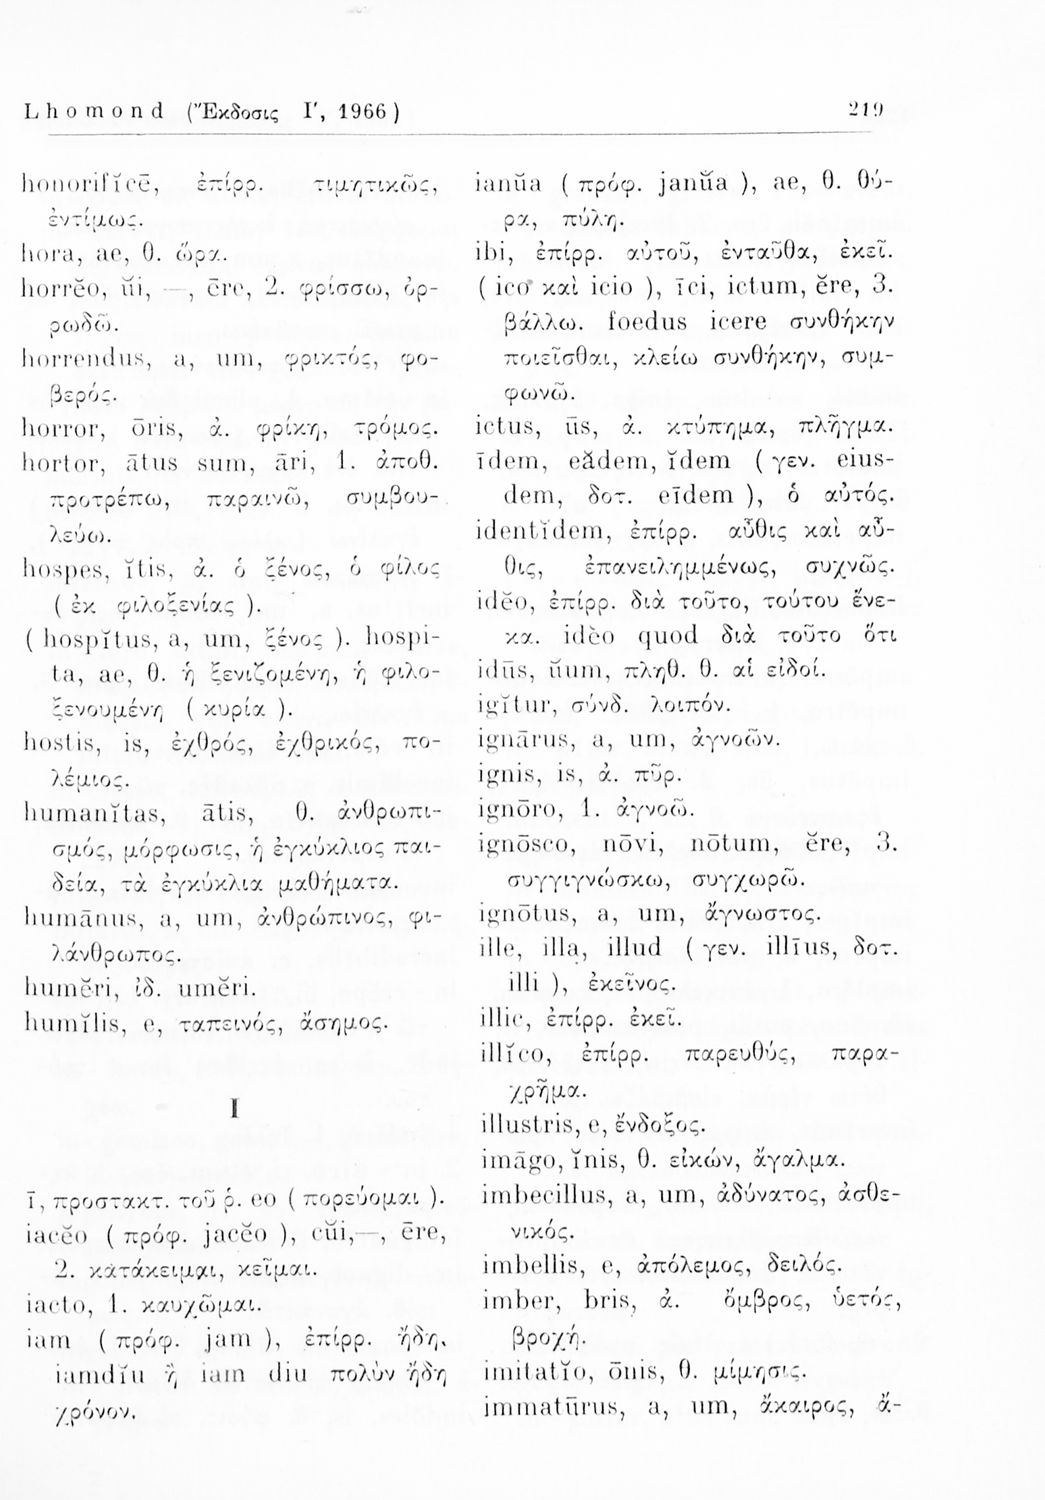 Lhomond (Ἔκδοσις Ι′, 1966) 219
honorifĭcē, ἐπίρρ. τιμητικῶς,
ἐντίμως.
hora, ae, θ. ὥρα.
horrĕo, ŭi, —, ēre, 2. φρίσσω, ὀρ-
ρωδῶ.
horrendus, a, um, φρικτός, φο-
βερός.
horror, ōris, ἀ. φρίκη, τρόμος.
hortor, ātus sum, āri, 1. ἀποθ.
προτρέπω, παραινῶ, συμβου-
λεύω.
hospes, ĭtis, ἀ. ὁ ξένος, ὁ φίλος
( ἐκ φιλοξενίας ).
( hospĭtus, a, um, ξένος ). hospi-
ta, ae, θ. ἡ ξενιζομένη, ἡ φιλο-
ξενουμένη ( κυρία ).
hostis, is, ἐχθρός, ἐχθρικός, πο-
λέμιος.
humanĭtas, ātis, θ. ἀνθρωπι-
σμός, μόρφωσις, ἡ ἐγκύκλιος παι-
δεία, τὰ ἐγκύκλια μαθήματα.
humānus, a, um, ἀνθρώπινος, φι-
λάνθρωπος.
humĕri, ἰδ. umĕri.
humĭlis, e, ταπεινός, ἄσημος.
I
ī, προστακτ. τοῦ ῥ. eo ( πορεύομαι ).
iacĕo ( πρόφ. jacĕo ), cŭi,—, ēre,
2. κατάκειμαι, κεῖμαι.
iacto, 1. καυχῶμαι.
iam ( πρόφ. jam ), ἐπίρρ. ἤδη.
iamdĭu ἢ iam diu πολὺν ἤδη
χρόνον.
ianŭa ( πρόφ. janŭa ), ae, θ. θύ-
ρα, πύλη.
ibi, ἐπίρρ. αὐτοῦ, ἐνταῦθα, ἐκεῖ.
( ico καὶ icio ), īci, ictum, ĕre, 3.
βάλλω. foedus icere συνθήκην
ποιεῖσθαι, κλείω συνθήκην, συμ-
φωνῶ.
ictus, ūs, ἀ. κτύπημα, πλῆγμα.
īdem, eădem, ĭdem ( γεν. eius-
dem, δοτ. eīdem ), ὁ αὐτός.
identĭdem, ἐπίρρ. αὖθις καὶ αὖ-
θις, ἐπανειλημμένως, συχνῶς.
idĕo, ἐπίρρ. διὰ τοῦτο, τούτου ἕνε-
κα. idĕo quod διὰ τοῦτο ὅτι
idūs, ŭum, πληθ. θ. αἱ εἰδοί.
igĭtur, σύνδ. λοιπόν.
ignārus, a, um, ἀγνοῶν.
ignis, is, ἀ. πῦρ.
ignōro, 1. ἀγνοῶ.
ignōsco, nōvi, nōtum, ĕre, 3.
συγγιγνώσκω, συγχωρῶ.
ignōtus, a, um, ἄγνωστος.
ille, illa, illud ( γεν. illīus, δοτ.
illi ), ἐκεῖνος.
illic, ἐπίρρ. ἐκεῖ.
illĭco, ἐπίρρ. παρευθύς, παρα-
χρῆμα.
illustris, e, ἔνδοξος.
imāgo, ĭnis, θ. εἰκών, ἄγαλμα.
imbecillus, a, um, ἀδύνατος, ἀσθε-
νικός.
imbellis, e, ἀπόλεμος, δειλός.
imber, bris, ἀ. ὄμβρος, ὑετός,
βροχή.
imitatĭo, ōnis, θ. μίμησις.
immatūrus, a, um, ἄκαιρος, ἄ-